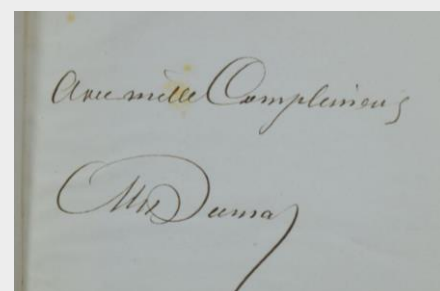 Avec mille Complimens
Alex Dumas